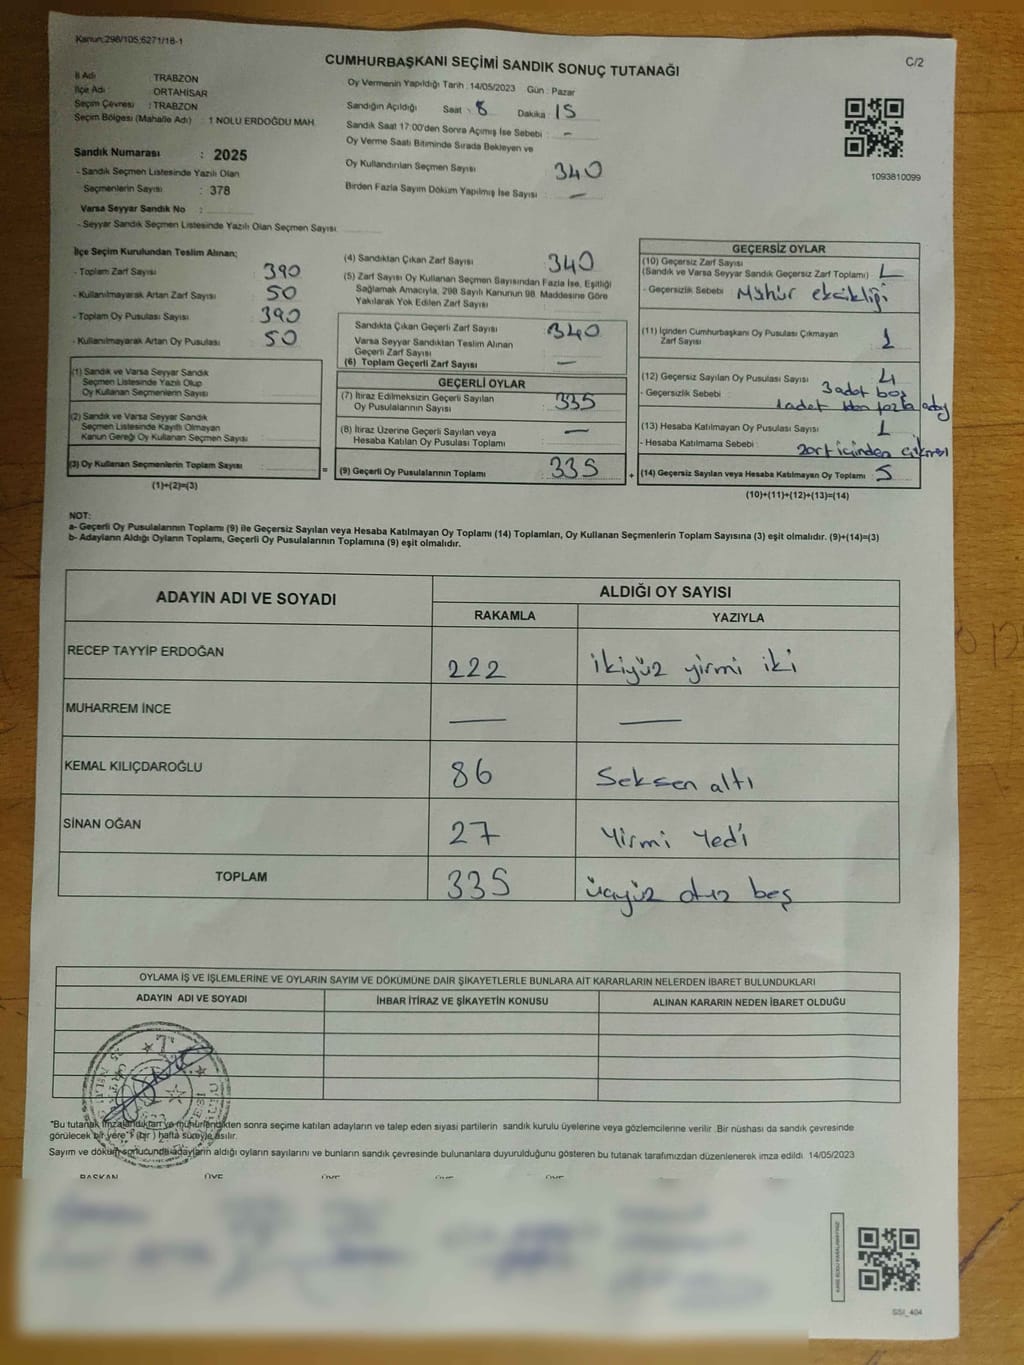 Kanun:298/105;6271/18-1
CUMHURBAŞKANI SEÇİMİ SANDIK SONUÇ TUTANAĞI
C/2
İl Adı : TRABZON
İlçe Adı : ORTAHİSAR
Seçim Çevresi : TRABZON
Seçim Bölgesi (Mahalle Adı) : 1 NOLU ERDOĞDU MAH.
Sandık Numarası : 2025
- Sandık Seçmen Listesinde Yazılı Olan
Seçmenlerin Sayısı : 378
Varsa Seyyar Sandık No :
- Seyyar Sandık Seçmen Listesinde Yazılı Olan Seçmen Sayısı
Oy Vermenin Yapıldığı Tarih : 14/05/2023 Gün : Pazar
Sandığın Açıldığı Saat : 8 Dakika : 15
Sandık Saat 17:00'den Sonra Açımış İse Sebebi : -
Oy Verme Saati Bitiminde Sırada Bekleyen ve
Oy Kullandırılan Seçmen Sayısı 340
Birden Fazla Sayım Döküm Yapılmış İse Sayısı : -
1093810099
İlçe Seçim Kurulundan Teslim Alınan;
- Toplam Zarf Sayısı : 390
- Kullanılmayarak Artan Zarf Sayısı : 50
- Toplam Oy Pusulası Sayısı : 390
- Kullanılmayarak Artan Oy Pusulası : 50
(1) Sandık ve Varsa Seyyar Sandık
Seçmen Listesinde Yazılı Olup
Oy Kullanan Seçmenlerin Sayısı :
(2) Sandık ve Varsa Seyyar Sandık
Seçmen Listesinde Kayıtlı Olmayan
Kanun Gereği Oy Kullanan Seçmen Sayısı :
(3) Oy Kullanan Seçmenlerin Toplam Sayısı :
(1)+(2)=(3)
(4) Sandıktan Çıkan Zarf Sayısı : 340
(5) Zarf Sayısı Oy Kullanan Seçmen Sayısından Fazla İse, Eşitliği
Sağlamak Amacıyla, 298 Sayılı Kanunun 98. Maddesine Göre
Yakılarak Yok Edilen Zarf Sayısı :
Sandıkta Çıkan Geçerli Zarf Sayısı : 340
Varsa Seyyar Sandıktan Teslim Alınan
Geçerli Zarf Sayısı :
(6) Toplam Geçerli Zarf Sayısı : -
GEÇERLİ OYLAR
(7) İtiraz Edilmeksizin Geçerli Sayılan
Oy Pusulalarının Sayısı : 335
(8) İtiraz Üzerine Geçerli Sayılan veya
Hesaba Katılan Oy Pusulası Toplamı : -
= (9) Geçerli Oy Pusulalarının Toplamı : 335
GEÇERSİZ OYLAR
(10) Geçersiz Zarf Sayısı
(Sandık ve Varsa Seyyar Sandık Geçersiz Zarf Toplamı) :
- Geçersizlik Sebebi : Mühür eksikliği
(11) İçinden Cumhurbaşkanı Oy Pusulası Çıkmayan
Zarf Sayısı : 1
(12) Geçersiz Sayılan Oy Pusulası Sayısı : 4
- Geçersizlik Sebebi : 3 adet boş
1 adet fazla
(13) Hesaba Katılmayan Oy Pusulası Sayısı :
- Hesaba Katılmama Sebebi : zarf içinden
+ (14) Geçersiz Sayılan veya Hesaba Katılmayan Oy Toplamı : 5
(10)+(11)+(12)+(13)=(14)
NOT:
a- Geçerli Oy Pusulalarının Toplamı (9) ile Geçersiz Sayılan veya Hesaba Katılmayan Oy Toplamı (14) Toplamları, Oy Kullanan Seçmenlerin Toplam Sayısına (3) eşit olmalıdır. (9)+(14)=(3)
b- Adayların Aldığı Oyların Toplamı, Geçerli Oy Pusulalarının Toplamına (9) eşit olmalıdır.
ADAYIN ADI VE SOYADI
ALDIĞI OY SAYISI
RAKAMLA YAZIYLA
RECEP TAYYİP ERDOĞAN 222 ikiyüz yirmi iki
MUHARREM İNCE — —
KEMAL KILIÇDAROĞLU 86 Seksen altı
SİNAN OĞAN 27 Yirmi Yedi
TOPLAM 335 üçyüz otuz beş
OYLAMA İŞ VE İŞLEMLERİNE VE OYLARIN SAYIM VE DÖKÜMÜNE DAİR ŞİKAYETLERLE BUNLARA AİT KARARLARIN NELERDEN İBARET BULUNDUKLARI
ADAYIN ADI VE SOYADI İHBAR İTİRAZ VE ŞİKAYETİN KONUSU ALINAN KARARIN NEDEN İBARET OLDUĞU
"Bu tutanak imzalandıktan ve mühürlendikten sonra seçime katılan adayların ve talep eden siyasi partilerin sandık kurulu üyelerine veya gözlemcilerine verilir. Bir nüshası da sandık çevresinde
görülecek bir yere 1 (bir) hafta süreyle asılır.
Sayım ve döküm sonucunda adayların aldığı oyların sayılarını ve bunların sandık çevresinde bulunanlara duyurulduğunu gösteren bu tutanak tarafımızdan düzenlenerek imza edildi. 14/05/2023
BAŞKAN ÜYE ÜYE ÜYE ÜYE
SSI_404